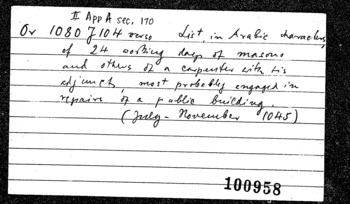 II App A sec. 170
Or 1080 J 104 verso List, in Arabic characters,
of 24 working days of masons
and others of a carpenter with his
adjunct, most probably engaged in
repairs of a public building.
(July - November 1045)
100958